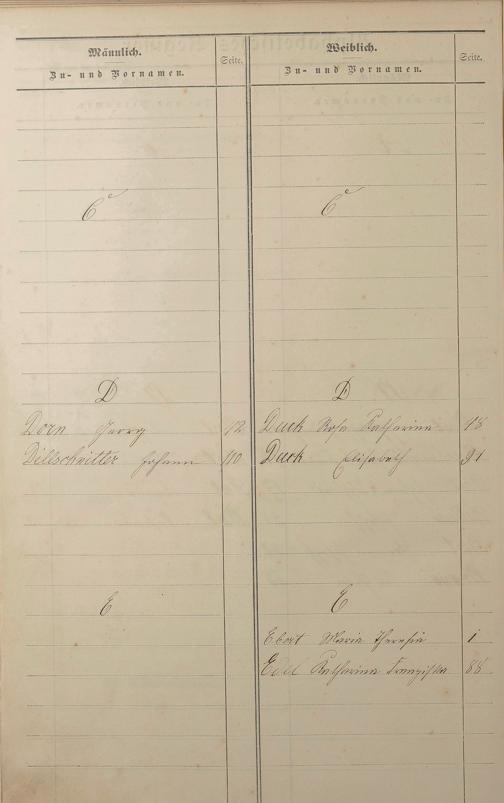 Männlich.
Zu- und Vornamen.
Seite.
Weiblich.
Zu- und Vornamen.
Seite.
C
C
D
D
Dorn Georg 12
Duck Rosa Katharina 18
Dillschnitter Johann 110
Duck Elisabeth 91
E
E
Ebert Maria Theresia 1
Edel Katharina Franziska 88